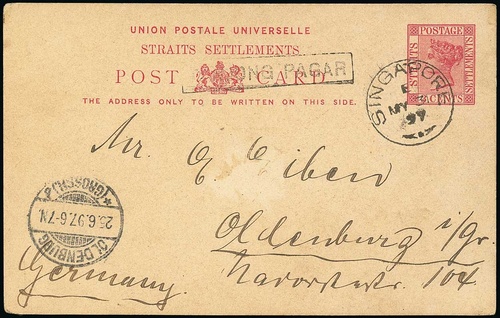 UNION POSTALE UNIVERSELLE
STRAITS SETTLEMENTS.
POST CARD
NG PAGAR
THE ADDRESS ONLY TO BE WRITTEN ON THIS SIDE.
POSTAGE
STRAITS
SETTLEMENTS
CENTS
SINGAPORE
MY
97
Mr. E Eiben
Oldenburg i/Gr.
104
Germany
OLDENBURG
25.6.97.6-7N.
(GROSSH.)